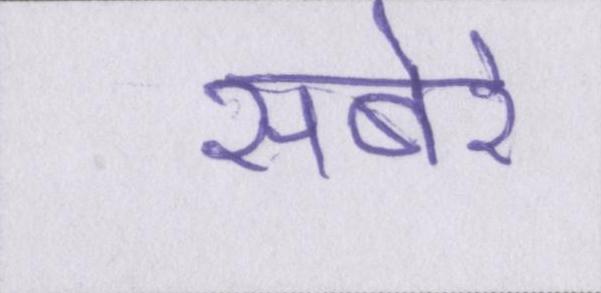 सबेरे